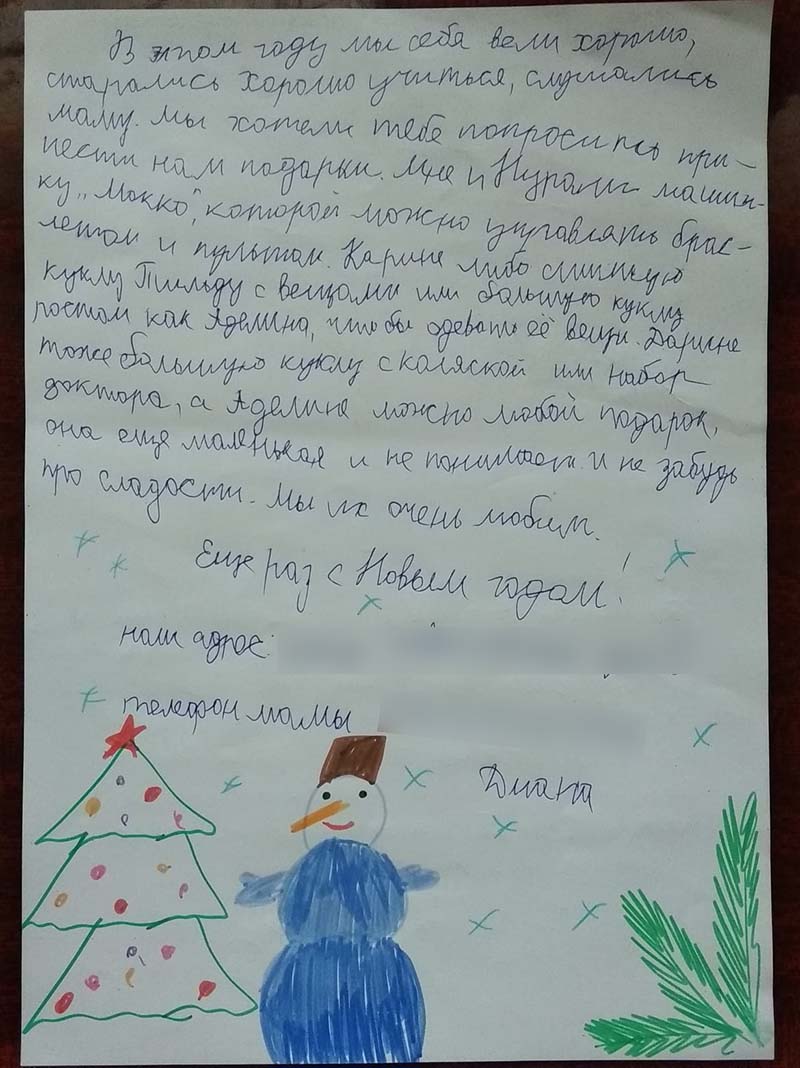 В этом году мы себя вели хорошо,
старались хорошо учиться, слушались
маму. Мы хотели тебе попросить при-
нести нам подарки. Мне и Нурали машин-
ку „Мокко", которой можно управлять брас-
летом и пультом. Карине либо сшитую
куклу Тильду с вещами или большую куклу
ростом как Аделина, чтобы одевать её вещи. Дарине
тоже большую куклу с коляской или набор
доктора, а Аделине можно любой подарок,
она еще маленькая и не понимает. И не забудь
про сладости. Мы их очень любим.
Еще раз с Новым годом!
наш адрес:
телефон мамы
Диана